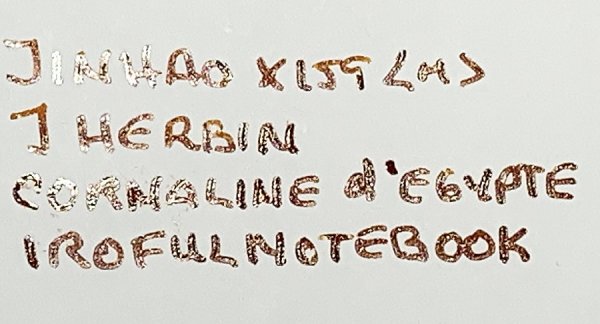 JINHAO X159 <M>
J HERBIN
CORNALINE d'EGYPTE
IROFUL NOTEBOOK